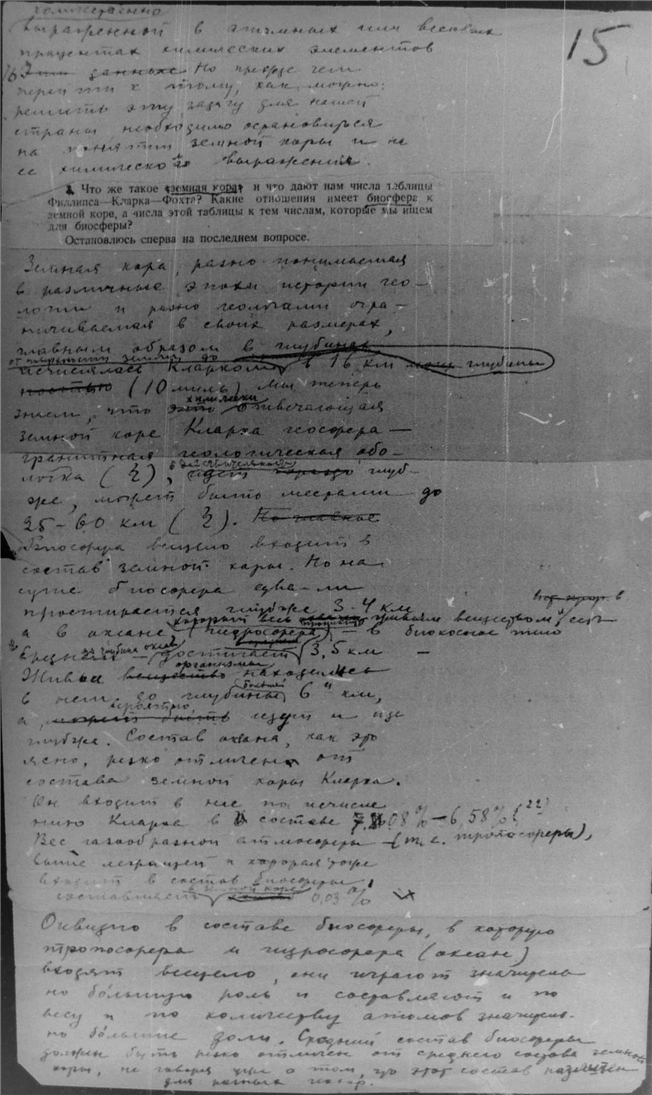 количественно
15
выраженной в атомных или весовых
процентах химических элементов
Но прежде чем
перейти к тому, как можно
решить эту задачу для нашей
страны необходимо остановиться
на понятии земной коры и на
ее химическом выражении.
Что же такое «земная кора» и что дают нам числа таблицы
Филлипса—Кларка—Фохта? Какие отношения имеет биосфера к
земной коре, а числа этой таблицы к тем числам, которые мы ищем
для биосферы?
Остановлюсь сперва на последнем вопросе.
Земная кора, разно понимаемая
в различные эпохи истории гео-
логии и разно геологами огра-
ничиваемая в своих размерах,
главным образом в глубинах
от поверхности земли до
исчислялась Кларком в 16 км глубины
(10 миль). Мы теперь
химически
знаем, что это отвечающая
земной коре Кларка геосфера —
гранитная геологическая обо-
действительности
лочка ( ), идет гораздо глуб-
же, может быть местами до
25-60 км ( ). Но главное
Биосфера всецело входит в
состав земной коры. Но на
суше биосфера едва-ли
простирается глубже 3-4 км
а в океане (гидросфера) — в биокосное тело
достигает 3,5 км —
организмы
Живые вещество находились
в нем до глубины 6 км,
вероятно
а может быть идут и еще
глубже. Состав океана, как это
ясно, резко отличен от
состава земной коры Кларка.
Он входит в нее по исчисле
нию Кларка в составе 7,08% — 6.58% (22)
Вес газообразной атмосферы — (т.е. тропосферы),
выше лежащей и которая тоже
входит в состав биосферы,
в земной коре
составляет 0,03%
Очевидно в составе биосферы, в которую
тропосфера и гидросфера (океан)
входят всецело, они играют значитель
но бо́льшую роль и составляют и по
весу и по количеству атомов значитель-
но бо́льшие доли. Средний состав биосферы
должен быть резко отличен от среднего состава земной
коры, не говоря уже о том, что этот состав различен
для разных геосфер.